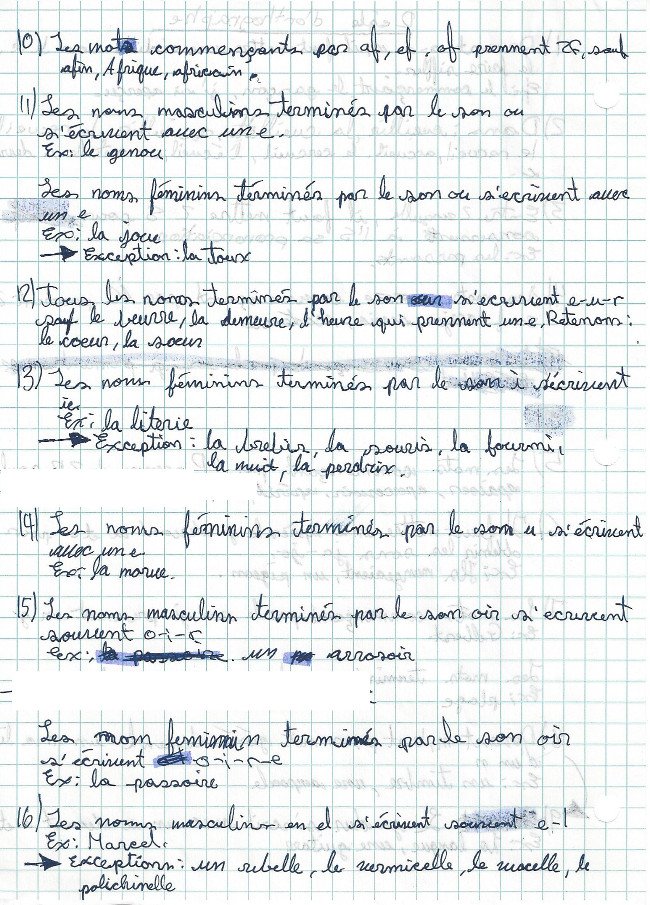 10) Les mots commençants par af, ef, of prennent 2F, sauf
afin, Afrique, africain.
11) Les noms masculins terminés par le son ou
s'écrivent avec un e.
Ex: le genou
Les noms féminins terminés par le son ou s'ecrivent avec
un e
Ex: la joue
→ Exception: la toux
12) Tous les noms terminés par le son eur s'ecrivent e-u-r
sauf le beurre, la demeure, l'heure qui prennent un e. Retenons:
le coeur, la soeur
13) Les noms féminins terminés par le son i s'écrivent
ie.
Ex: la literie
→ Exception: la brebis, la souris, la fourmi,
la nuit, la perdrix.
14) Les noms féminins terminés par le son u s'écrivent
avec un e
Ex: la morue.
15) Les noms masculins terminés par le son oir s'ecrivent
souvent o-i-r
Ex: un arrosoir
Les nom feminin terminés par le son oir
s'écrivent o-i-r-e
Ex: la passoire
16) Les noms masculins en el s'écrivent souvent e-l
Ex: Marcel.
→ Exceptions: un rebelle, le vermicelle, le
polichinelle